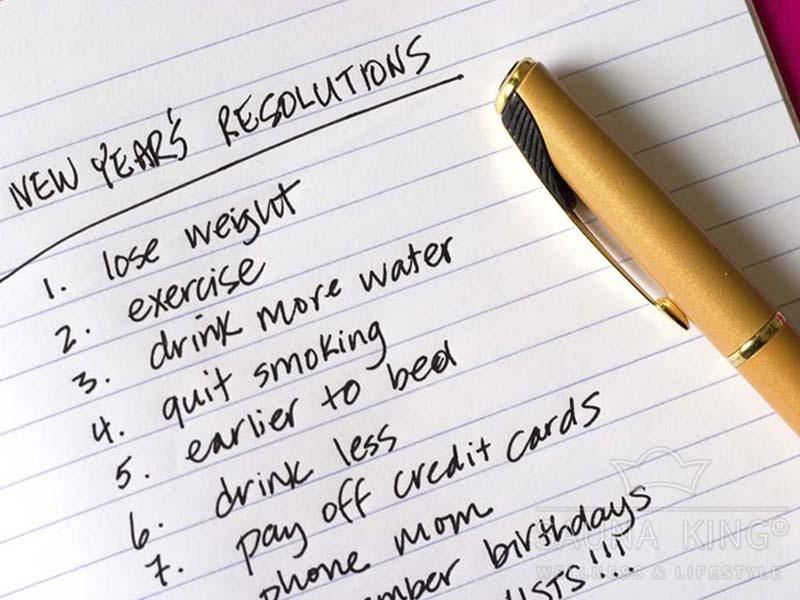 NEW YEAR'S RESOLUTIONS
1. lose weight
2. exercise
3. drink more water
4. quit smoking
5. earlier to bed
6. drink less
7. pay off credit cards
phone mom
birthdays
SAUNA KING®
WELLNESS & LIFESTYLE